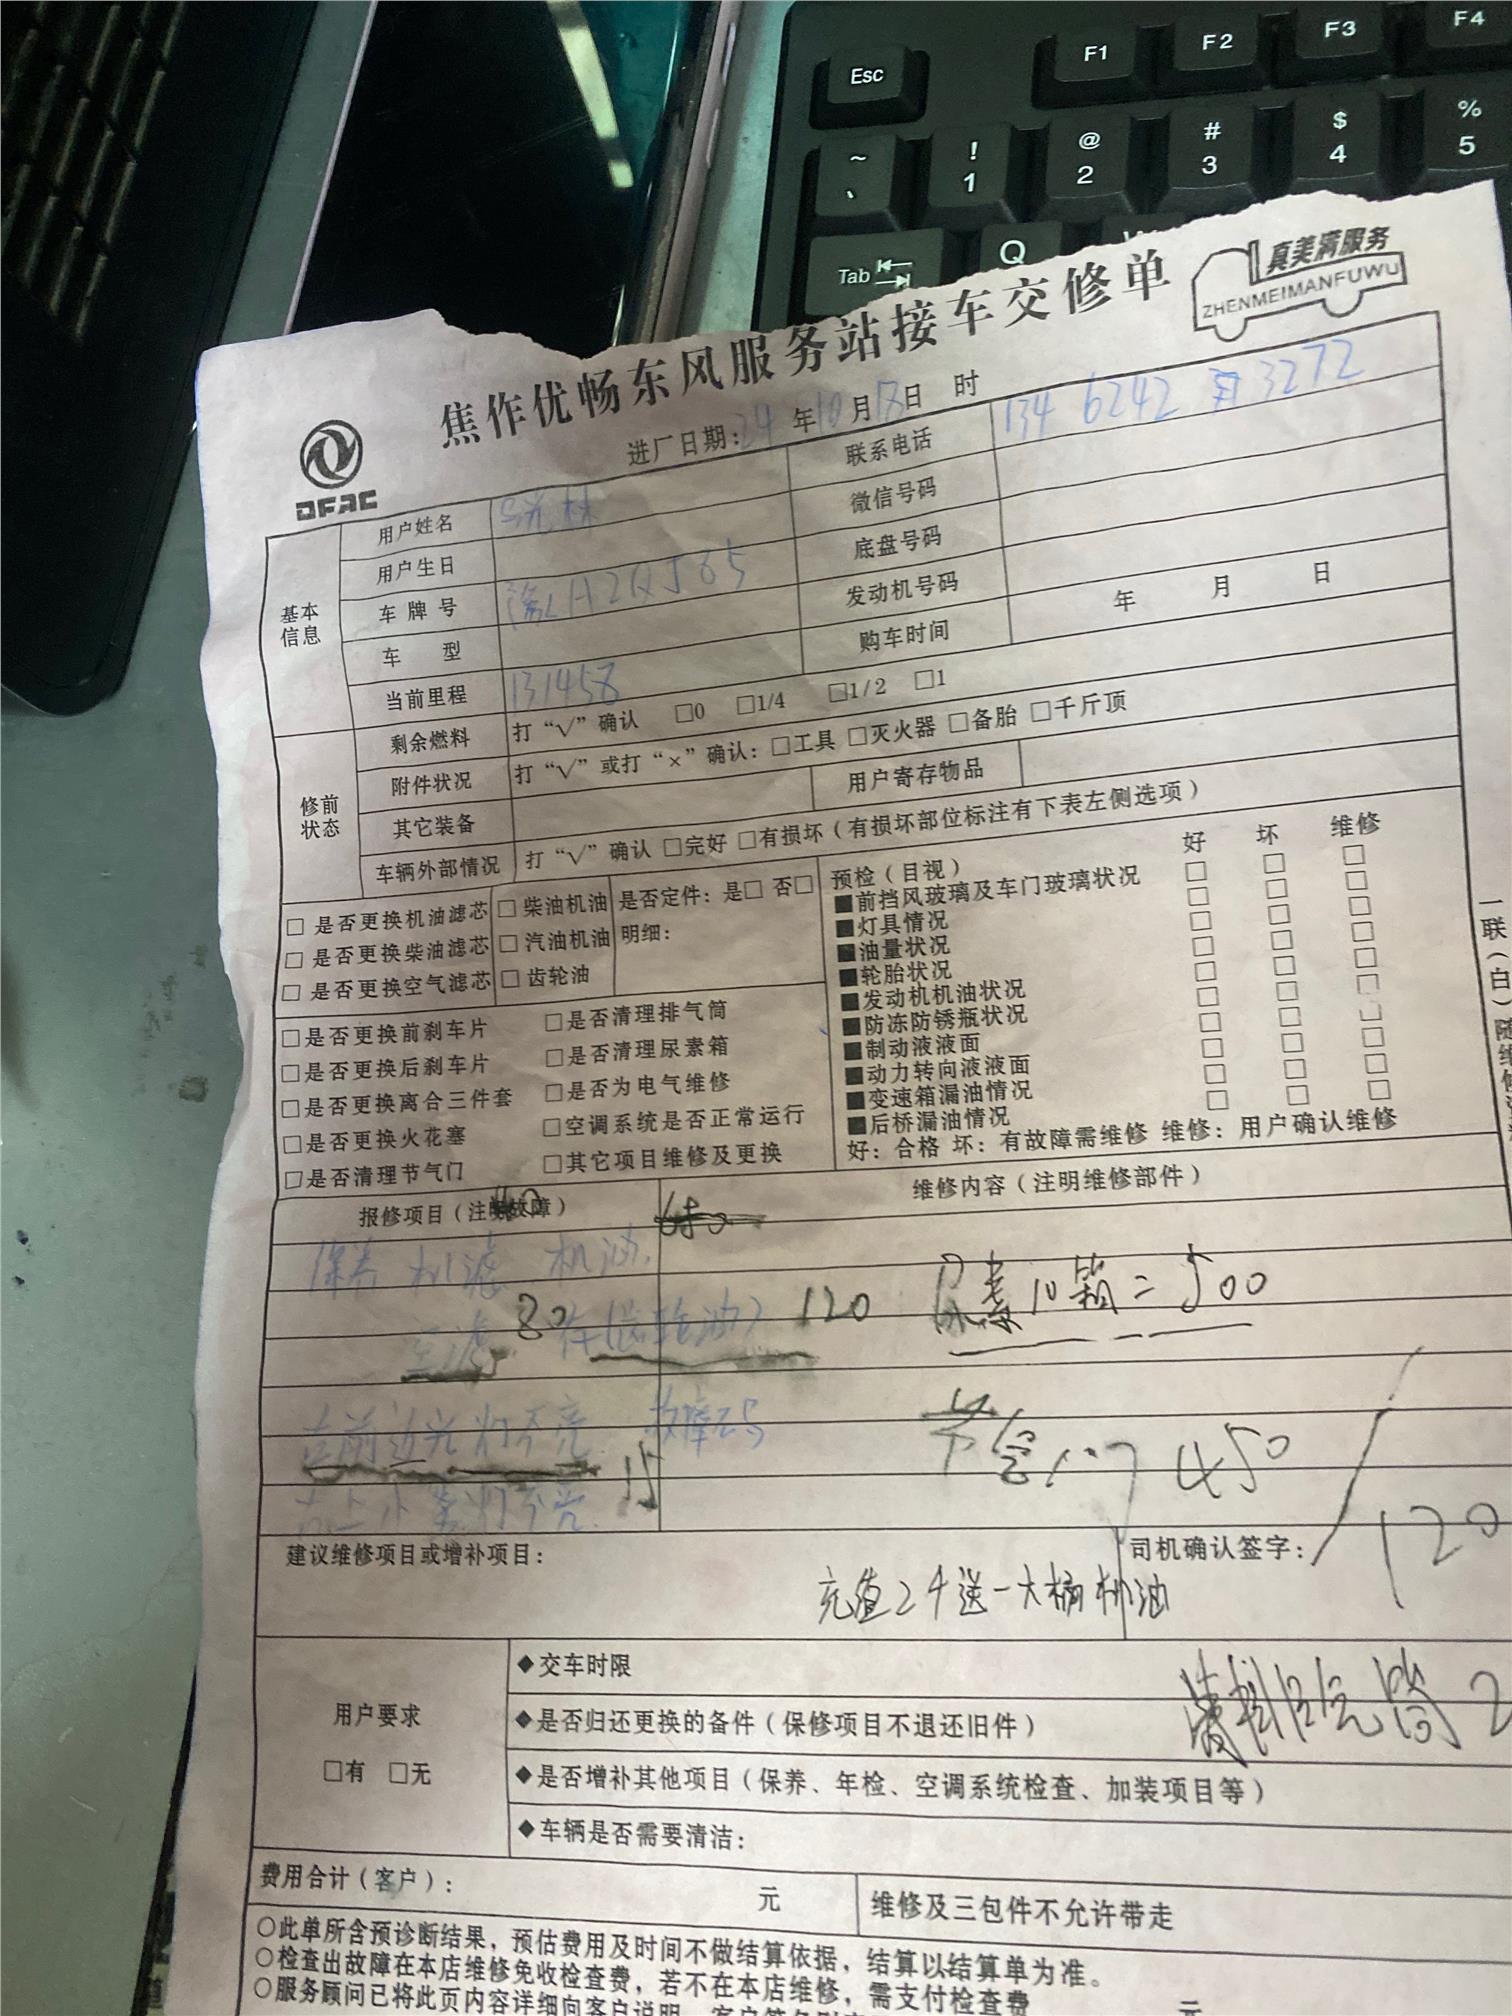 Esc F1 F2 F3 F4
~ ` ! 1 @ 2 # 3 $ 4 % 5
Tab Q W
焦作优畅东风服务站接车交修单
真美满服务
ZHENMEIMANFUWU
DFAC
进厂日期：24年10月18日 时
用户姓名 联系电话 134 6242 3272
用户生日 微信号码
基本信息
车牌号 豫H2QJ65 底盘号码
车 型 发动机号码
当前里程 131458 购车时间 年 月 日
修前状态
剩余燃料 打“√”确认 □0 □1/4 □1/2 □1
附件状况 打“√”或打“×”确认：□工具 □灭火器 □备胎 □千斤顶
其它装备 用户寄存物品
车辆外部情况 打“√”确认 □完好 □有损坏（有损坏部位标注有下表左侧选项）
□ 是否更换机油滤芯 □ 柴油机油 是否定件：是□ 否□
□ 是否更换柴油滤芯 □ 汽油机油 明细：
□ 是否更换空气滤芯 □ 齿轮油
□是否更换前刹车片 □是否清理排气筒
□是否更换后刹车片 □是否清理尿素箱
□是否更换离合三件套 □是否为电气维修
□是否更换火花塞 □空调系统是否正常运行
□是否清理节气门 □其它项目维修及更换
预检（目视） 好 坏 维修
■前挡风玻璃及车门玻璃状况 □ □ □
■灯具情况 □ □ □
■油量状况 □ □ □
■轮胎状况 □ □ □
■发动机机油状况 □ □ □
■防冻防锈瓶状况 □ □ □
■制动液液面 □ □ □
■动力转向液液面 □ □ □
■变速箱漏油情况 □ □ □
■后桥漏油情况 □ □ □
好：合格 坏：有故障需维修 维修：用户确认维修
一联（白）随维修
报修项目（注明故障） 维修内容（注明维修部件）
保养 机滤 机油
80 120 尿素10箱=500
右前边光灯不亮 故障码
15
450
120
建议维修项目或增补项目： 司机确认签字：
充值2千送一大桶机油
用户要求
□有 □无
◆交车时限
◆是否归还更换的备件（保修项目不退还旧件）
◆是否增补其他项目（保养、年检、空调系统检查、加装项目等）
◆车辆是否需要清洁：
费用合计（客户）： 元 维修及三包件不允许带走
○此单所含预诊断结果，预估费用及时间不做结算依据，结算以结算单为准。
○检查出故障在本店维修免收检查费，若不在本店维修，需支付检查费 元
○服务顾问已将此页内容详细向客户说明